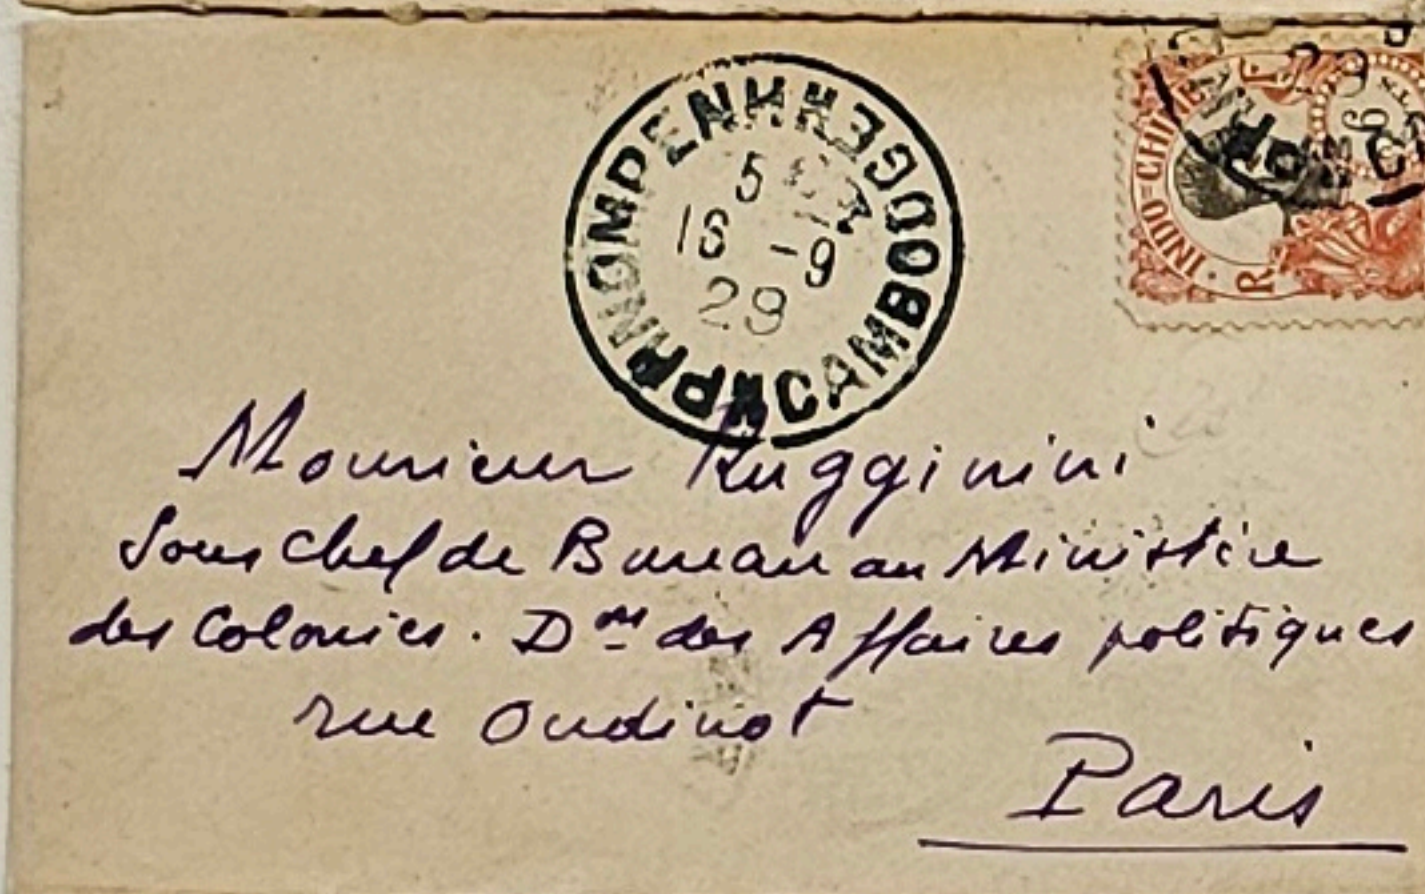 PNOMPENH
CAMBODGE
5
16 -9
29
INDO-CHINE
R F
Monsieur Rugginini
Sous Chef de Bureau au Ministère
des Colonies. Don des Affaires politiques
rue Oudinot
Paris